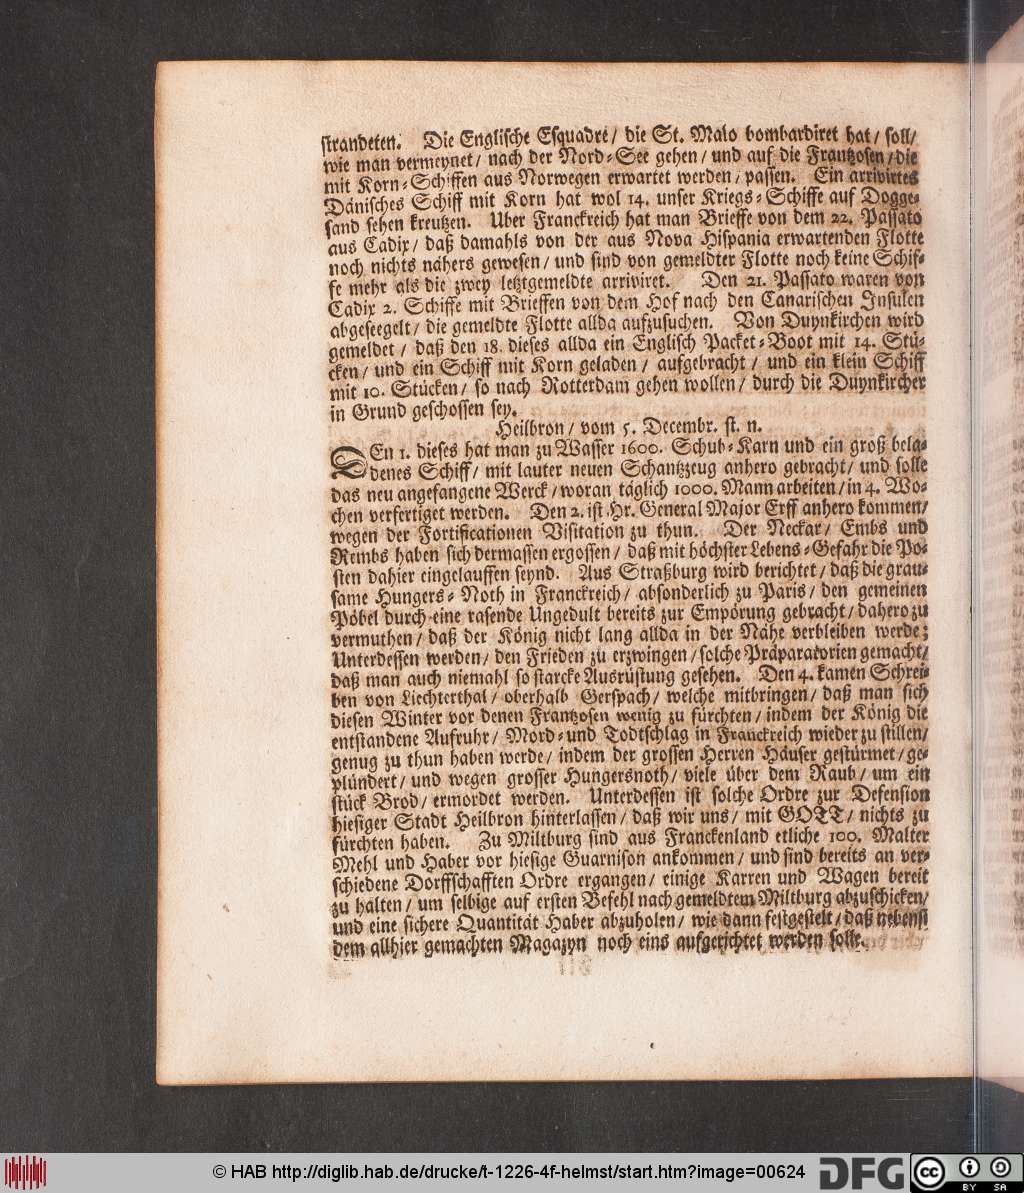 strandeten. Die Englische Esquadre / die St. Malo bombardiret hat / soll /
wie man vermeynet / nach der Nord-See gehen / und auf die Frantzosen / die
mit Korn-Schiffen aus Norwegen erwartet werden / passen. Ein arrivirtes
Dänisches Schiff mit Korn hat wol 14. unser Kriegs-Schiffe auf Dogge-
sand sehen kreutzen. Uber Franckreich hat man Brieffe von dem 22. Passato
aus Cadix / daß damahls von der aus Nova Hispania erwartenden Flotte
noch nichts nähers gewesen / und sind von gemeldter Flotte noch keine Schif-
fe mehr als die zwey letztgemeldte arriviret. Den 21. Passato waren von
Cadix 2. Schiffe mit Brieffen von dem Hof nach den Canarischen Insulen
abgeseegelt / die gemeldte Flotte allda aufzusuchen. Von Duynkirchen wird
gemeldet / daß den 18. dieses allda ein Englisch Packet-Boot mit 14. Stü-
cken / und ein Schiff mit Korn geladen / aufgebracht / und ein klein Schiff
mit 10. Stücken / so nach Rotterdam gehen wollen / durch die Duynkircher
in Grund geschossen sey.
Heilbron / vom 5. Decembr. st. n.
DEn 1. dieses hat man zu Wasser 1600. Schub-Karn und ein groß bela-
denes Schiff / mit lauter neuen Schantzzeug anhero gebracht / und solle
das neu angefangene Werck / woran täglich 1000. Mann arbeiten / in 4. Wo-
chen verfertiget werden. Den 2. ist Hr. General Major Erff anhero kommen /
wegen der Fortificationen Visitation zu thun. Der Neckar / Embs und
Rembs haben sich dermassen ergossen / daß mit höchster Lebens-Gefahr die Po-
sten dahier eingelauffen seynd. Aus Straßburg wird berichtet / daß die grau-
same Hungers-Noth in Franckreich / absonderlich zu Paris / den gemeinen
Pöbel durch eine rasende Ungedult bereits zur Empörung gebracht / dahero zu
vermuthen / daß der König nicht lang allda in der Nähe verbleiben werde;
Unterdessen werden / den Frieden zu erzwingen / solche Präparatorien gemacht /
daß man auch niemahl so starcke Ausrüstung gesehen. Den 4. kamen Schrei-
ben von Liechterthal / oberhalb Gerspach / welche mitbringen / daß man sich
diesen Winter vor denen Frantzosen wenig zu fürchten / indem der König die
entstandene Aufruhr / Mord- und Todtschlag in Franckreich wieder zu stillen /
genug zu thun haben werde / indem der grossen Herren Häuser gestürmet / ge-
plündert / und wegen grosser Hungersnoth / viele über dem Raub / um ein
stück Brod / ermordet werden. Unterdessen ist solche Ordre zur Defension
hiesiger Stadt Heilbron hinterlassen / daß wir uns / mit GOTT / nichts zu
fürchten haben. Zu Miltburg sind aus Franckenland etliche 100. Malter
Mehl und Haber vor hiesige Guarnison ankommen / und sind bereits an ver-
schiedene Dorffschafften Ordre ergangen / einige Karren und Wagen bereit
zu halten / um selbige auf ersten Befehl nach gemeldtem Miltburg abzuschicken /
und eine sichere Quantität Haber abzuholen / wie dann festgestelt / daß nebenst
dem allhier gemachten Magazyn noch eins aufgerichtet werden solle.
© HAB http://diglib.hab.de/drucke/t-1226-4f-helmst/start.htm?image=00624
DFG
cc BY SA